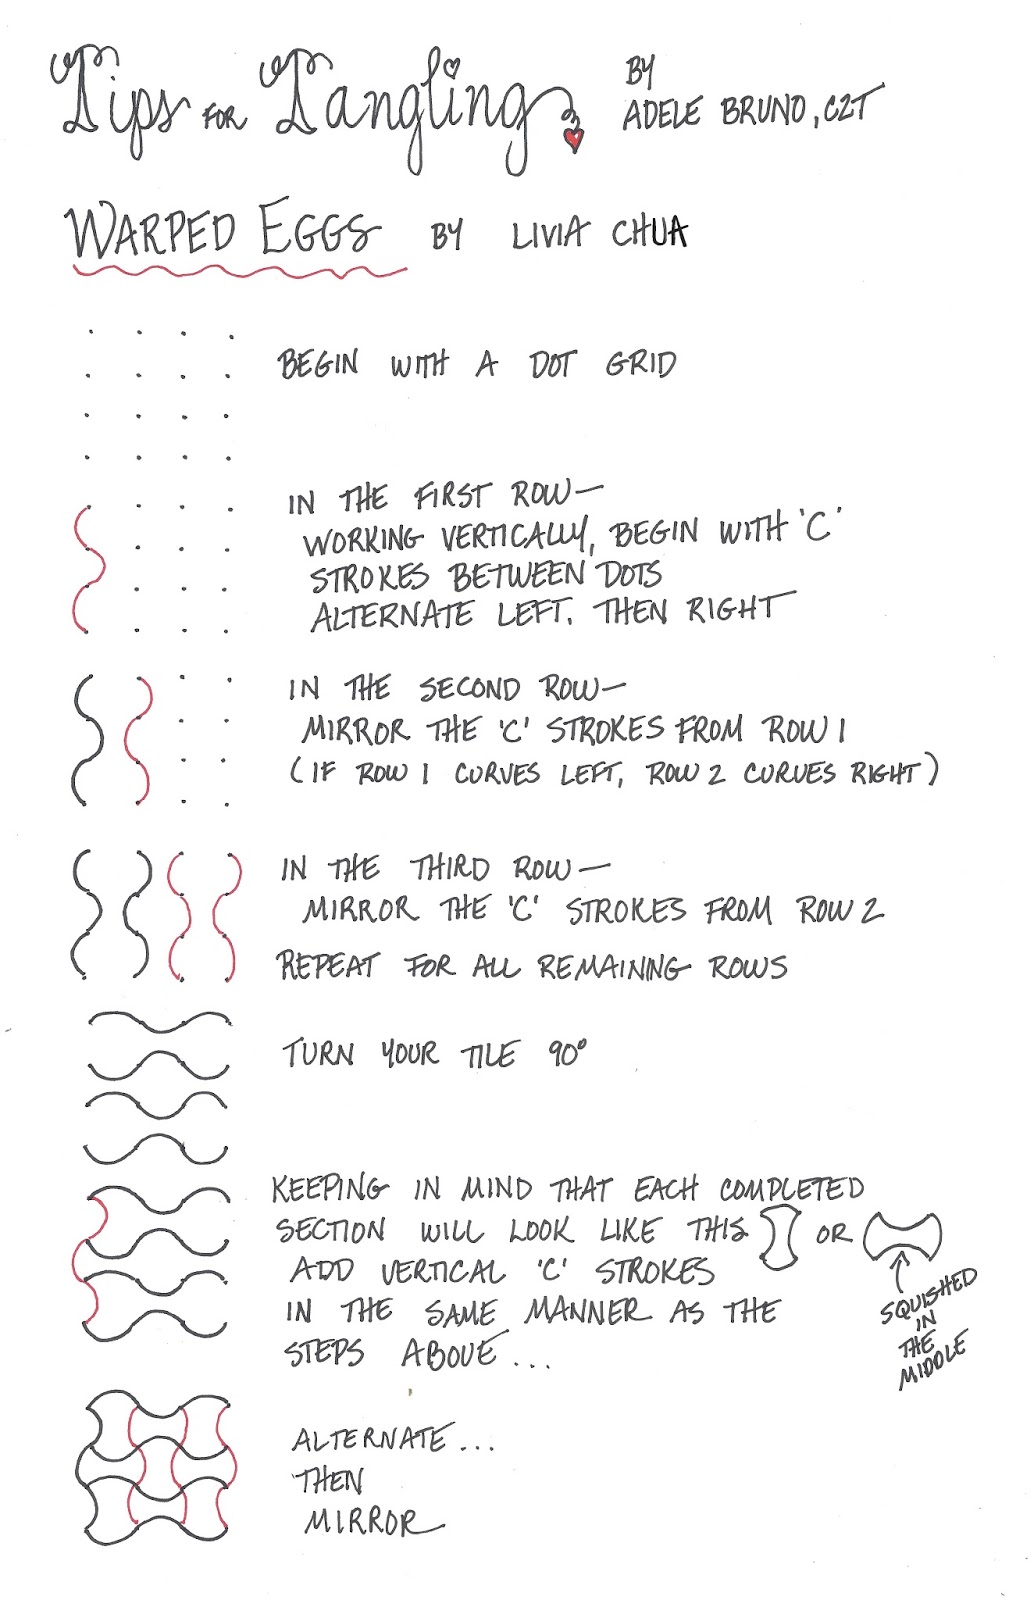 Tips for Tangling
BY
ADELE BRUNO, CZT
WARPED EGGS BY LIVIA CHUA
BEGIN WITH A DOT GRID
IN THE FIRST ROW—
WORKING VERTICALLY, BEGIN WITH 'C'
STROKES BETWEEN DOTS
ALTERNATE LEFT. THEN RIGHT
IN THE SECOND ROW—
MIRROR THE 'C' STROKES FROM ROW 1
(IF ROW 1 CURVES LEFT, ROW 2 CURVES RIGHT)
IN THE THIRD ROW—
MIRROR THE 'C' STROKES FROM ROW 2
REPEAT FOR ALL REMAINING ROWS
TURN YOUR TILE 90°
KEEPING IN MIND THAT EACH COMPLETED
SECTION WILL LOOK LIKE THIS OR
ADD VERTICAL 'C' STROKES
IN THE SAME MANNER AS THE
STEPS ABOVE...
SQUISHED
IN
THE
MIDDLE
ALTERNATE...
THEN
MIRROR